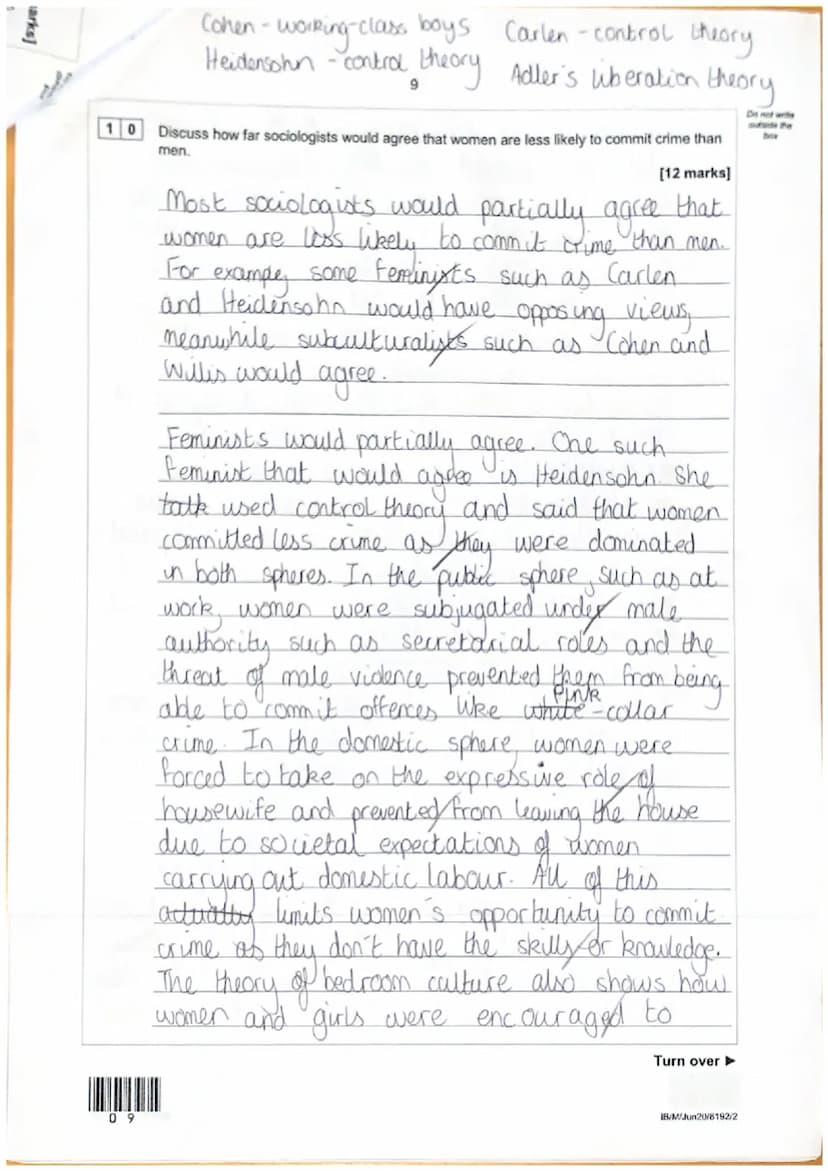 arks]
Cohen - working-class boys Carlen - control theory
Heidensohn - control theory Adler's liberation theory
9
Do not write
outside the
box
1 0 Discuss how far sociologists would agree that women are less likely to commit crime than
men.
[12 marks]
Most sociologists would partially agree that
women are less likely to commit crime than men.
For exampe, some feminists such as Carlen
and Heidensohn would have opposing views,
meanwhile subculturalists such as Cohen and
Willis would agree.
Feminists would partially agree. One such
feminist that would agree is Heidensohn. She
talk used control theory and said that women
committed less crime as they were dominated
in both spheres. In the public sphere, such as at
work, women were subjugated under male
authority such as secretarial roles and the
threat of male violence prevented them from being
able to commit offences like white Pink-collar
crime. In the domestic sphere, women were
forced to take on the expressive role of
housewife and prevented from leaving the house
due to societal expectations of women
carrying out domestic labour. All of this
actually limits women's opportunity to commit
crime as they don't have the skills or knowledge.
The theory of bedroom culture also shows how
women and girls were encouraged to
Turn over ►
0 9
IB/M/Jun20/8192/2